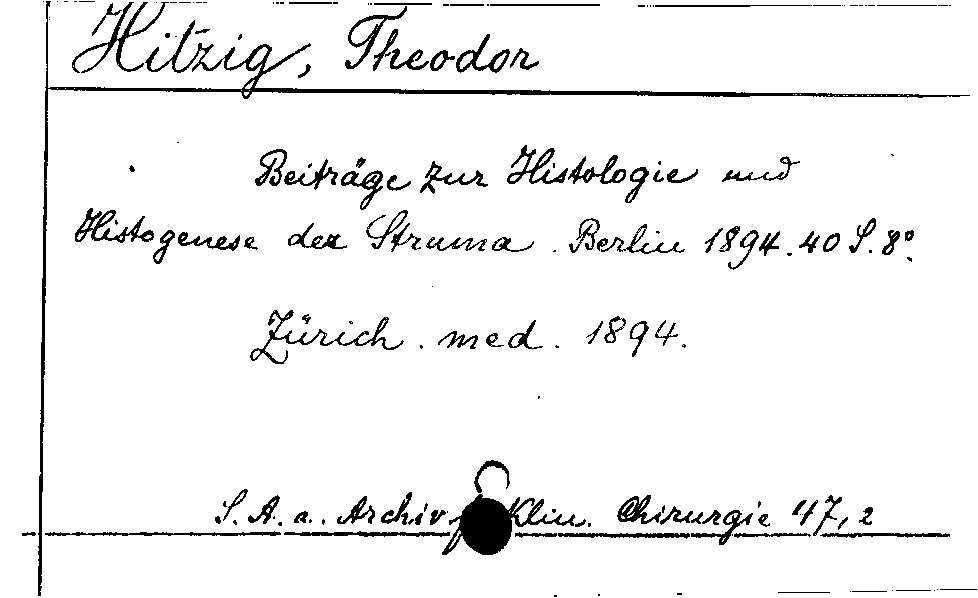 Hitzig, Theodor
Beiträge zur Histologie und
Histogenese der Struma. Berlin 1894. 40 S. 8°.
Zürich. med. 1894.
S. A. a. Archiv f. Klin. Chirurgie 47,2